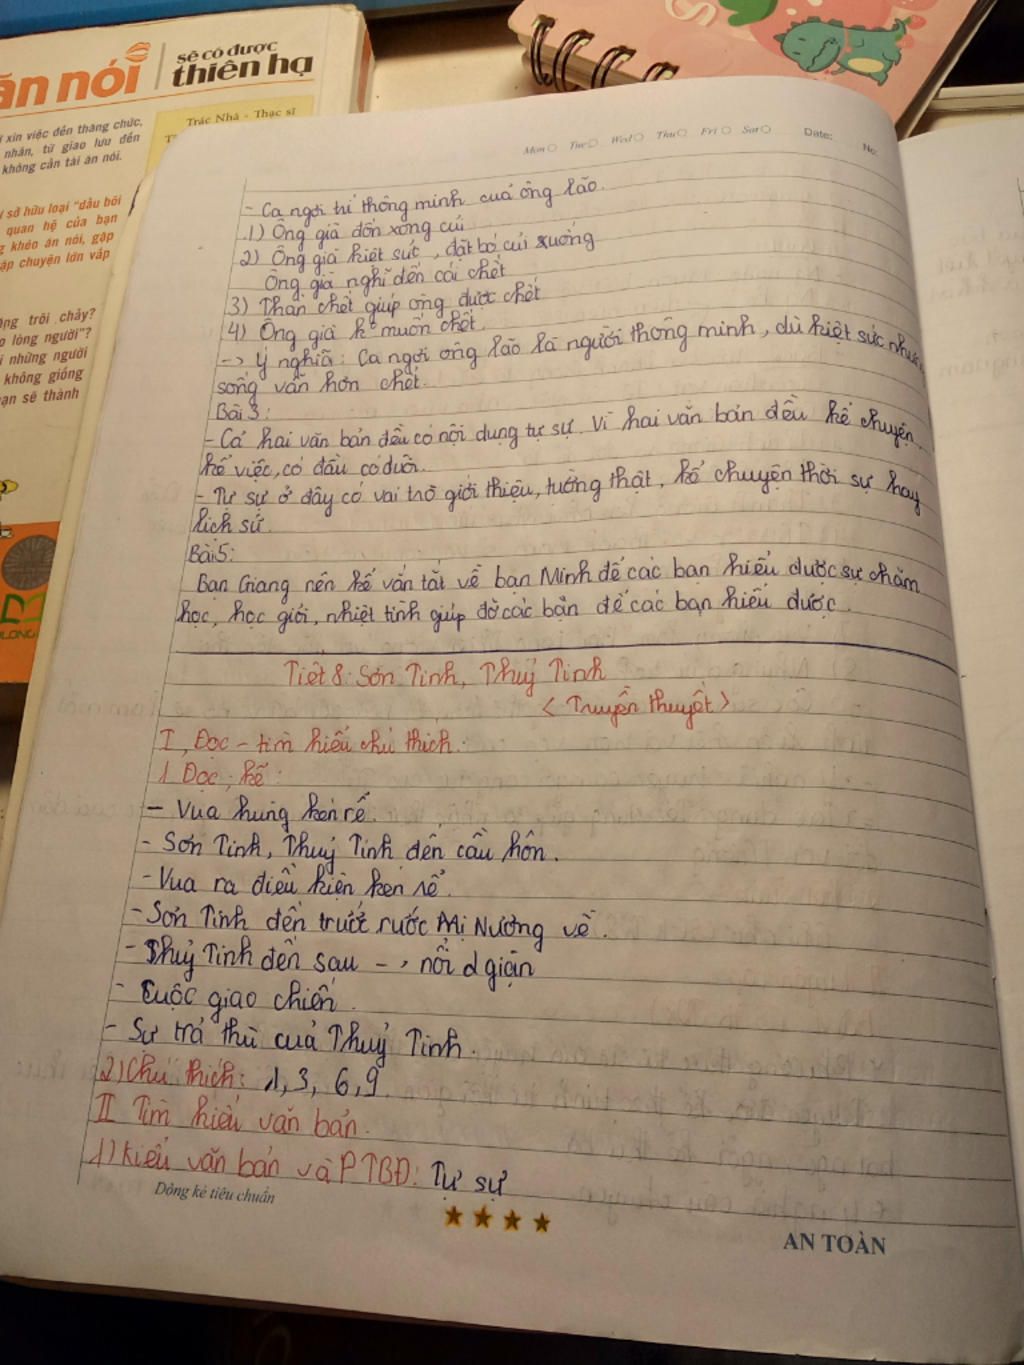 ăn nói
sẽ có được
thiên hạ
Trác Nhã - Thạc sĩ
xin việc đến thăng chức,
nhân, từ giao lưu đến
không cần tài ăn nói.
sở hữu loại "dầu bôi
quan hệ của bạn
khéo ăn nói, gặp
gặp chuyện lớn vấp
trôi chảy?
lòng người"?
những người
không giống
bạn sẽ thành
LONG
Mon Tue Wed Thu Fri Sat Date: No:
- Ca ngợi trí thông minh cuả ông lão.
1) Ông già đốn xong củi
2) Ông già kiệt sức, đặt bó củi xuống
Ông già nghĩ đến cái chết
3) Thần chết giúp ông được chết
4) Ông già k muốn chết.
-> Ý nghĩa: Ca ngợi ông lão là người thông minh, dù kiệt sức nhưng
sống vẫn hơn chết.
Bài 3:
- Cả hai văn bản đều có nội dung tự sự. Vì hai văn bản đều kể chuyện,
kể việc, có đầu có đuôi.
- Tự sự ở đây có vai trò giới thiệu, tường thật, kể chuyện thời sự hay
lịch sử.
Bài 5:
Bạn Giang nên kể vắn tắt về bạn Minh để các bạn hiểu được sự chăm
học, học giỏi, nhiệt tình giúp đỡ các bạn để các bạn hiểu được.
Tiết 8: Sơn Tinh, Thuỷ Tinh
< Truyền thuyết >
I, Đọc - tìm hiểu chú thích.
1. Đọc, kể:
- Vua hùng kén rể.
- Sơn Tinh, Thuỷ Tinh đến cầu hôn.
- Vua ra điều kiện kén rể.
- Sơn Tinh đến trước rước Mị Nương về.
- Thuỷ Tinh đến sau -> nổi giận
- Cuộc giao chiến.
- Sự trả thù của Thuỷ Tinh.
2) Chú thích: 1, 3, 6, 9
II Tìm hiểu văn bản.
1) Kiểu văn bản và PTBĐ: Tự sự
Dòng kẻ tiêu chuẩn
AN TOÀN